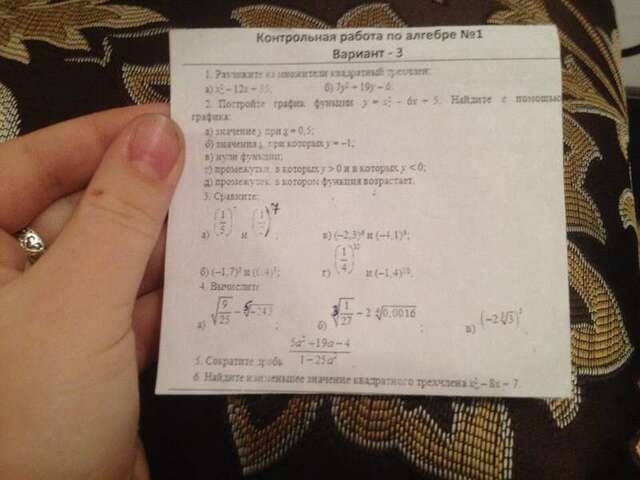 Контрольная работа по алгебре №1
Вариант - 3
1. Разложите на множители квадратный трехчлен:
а) x² – 12x + 35; б) 7y² + 19y – 6.
2. Постройте график функции y = x² – 6x + 5. Найдите с помощью
графика:
а) значение y при x = 0,5;
б) значения x, при которых y = –1;
в) нули функции;
г) промежутки, в которых y > 0 и в которых y < 0;
д) промежуток, в котором функция возрастает.
3. Сравните:
а) (1/5) и (1/ )⁷; в) (–2,3)⁶ и (–4,1)⁶;
б) (–1,7)⁵ и ( ,4)⁵; г) (1/4)¹⁰ и (–1,4)¹⁰.
4. Вычислите
а) √(9/25) – ⁵√–243; б) ³√(1/27) – 2 ⁴√0,0016; в) (–2 ∜3)
5. Сократите дробь (5a² –19a – 4)/(1 – 25a²)
6. Найдите наименьшее значение квадратного трехчлена x² – 8x + 7.